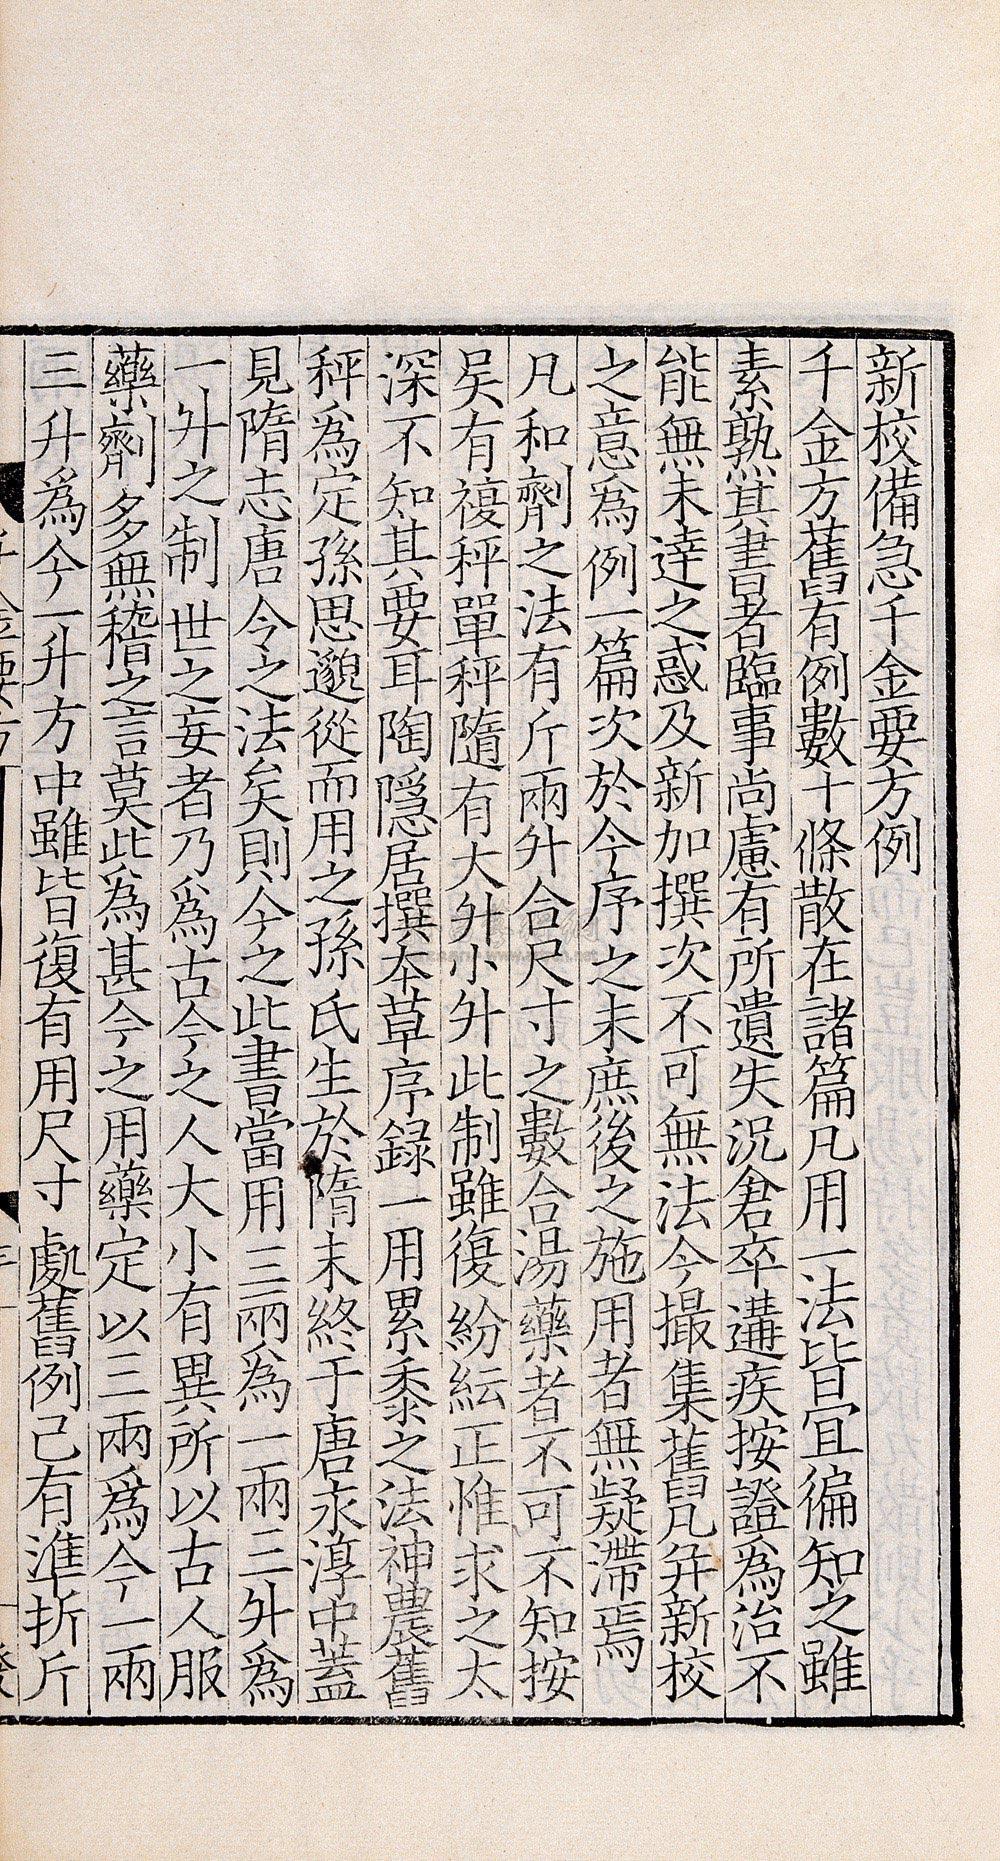 新校備急千金要方例
千金方舊有例數十條散在諸篇凡用一法皆宜徧知之雖
素熟其書者臨事尚慮有所遺失況倉卒遘疾按證爲治不
能無未達之惑及新加撰次不可無法今撮集舊凡并新校
之意爲例一篇次於今序之末庶後之施用者無疑滯焉
凡和劑之法有斤兩升合尺寸之數合湯藥者不可不知按
吳有複秤單秤隋有大升小升此制雖復紛紜正惟求之太
深不知其要耳陶隱居撰本草序録一用累黍之法神農舊
秤爲定孫思邈從而用之孫氏生於隋末終于唐永淳中蓋
見隋志唐令之法矣則今之此書當用三兩爲一兩三升爲
一升之制世之妄者乃爲古今之人大小有異所以古人服
藥劑多無稽之言莫此爲甚今之用藥定以三兩爲今一兩
三升爲今一升方中雖皆復有用尺寸處舊例已有準折斤
千金要方